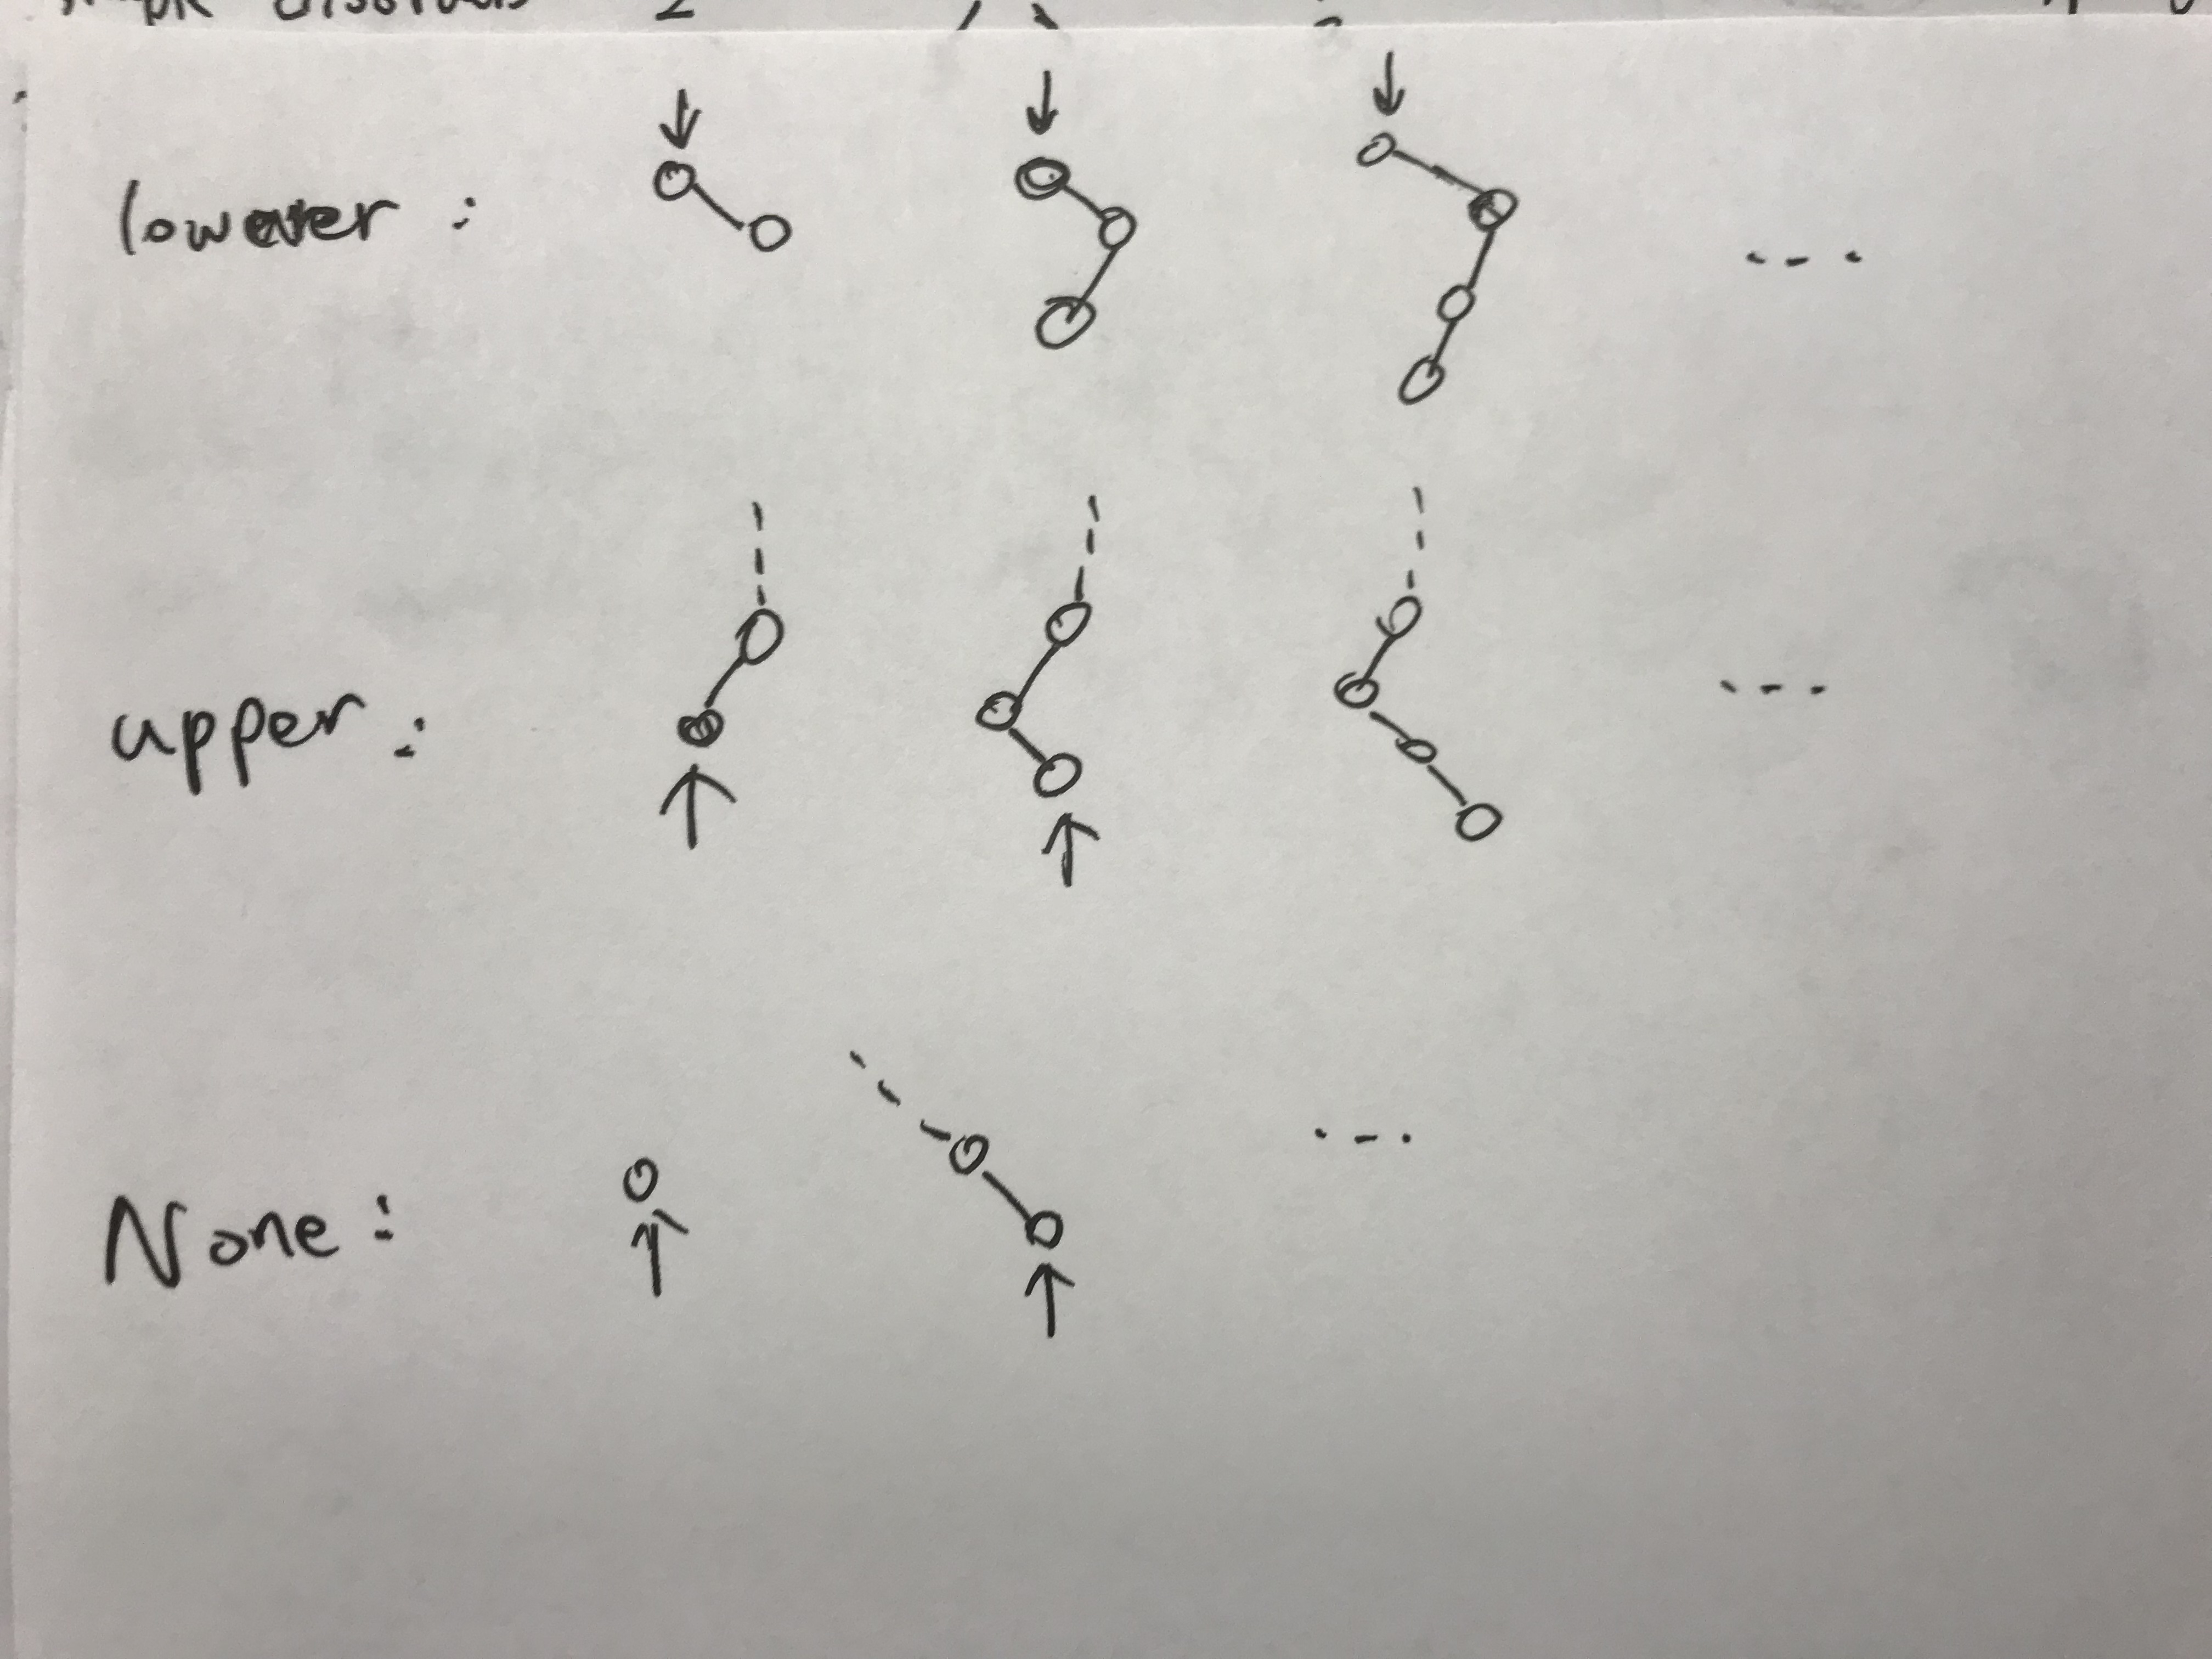 lower :
upper :
None :